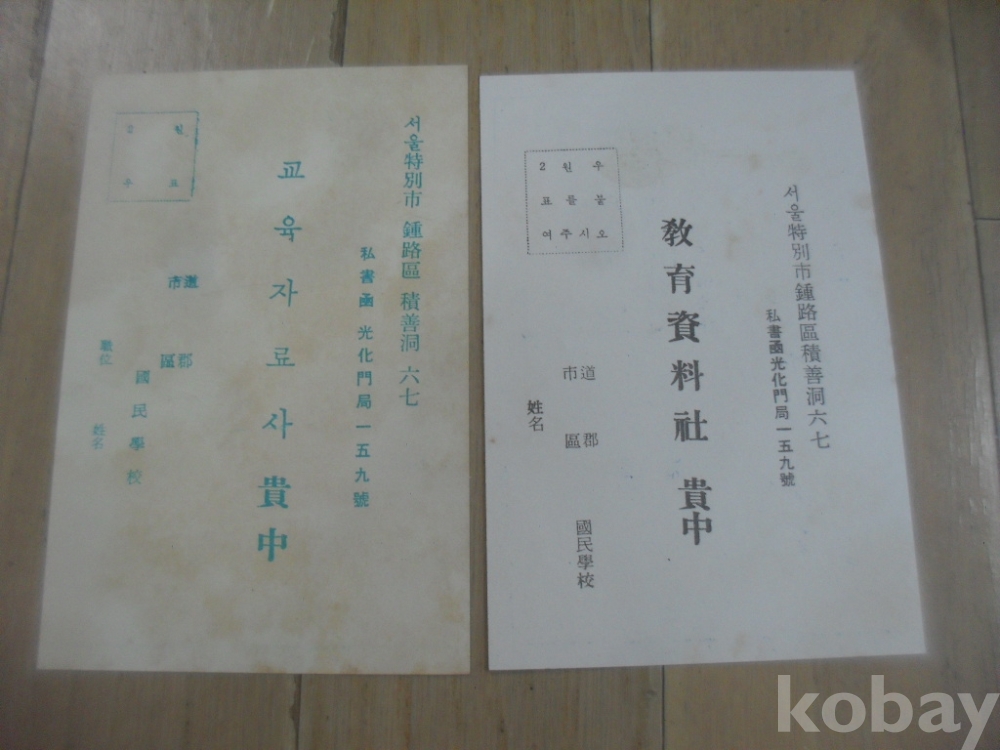 서울特別市 鍾路區 積善洞 六七
私書函 光化門局一五九號
교육자료사 貴中
2 원
우 표
道
市
郡
區
國民學校
職位
姓名
서울特別市鍾路區積善洞六七
私書函光化門局一五九號
敎育資料社 貴中
2 원 우
표 를 붙
여 주 시 오
道
市
郡
區
國民學校
姓名
kobay